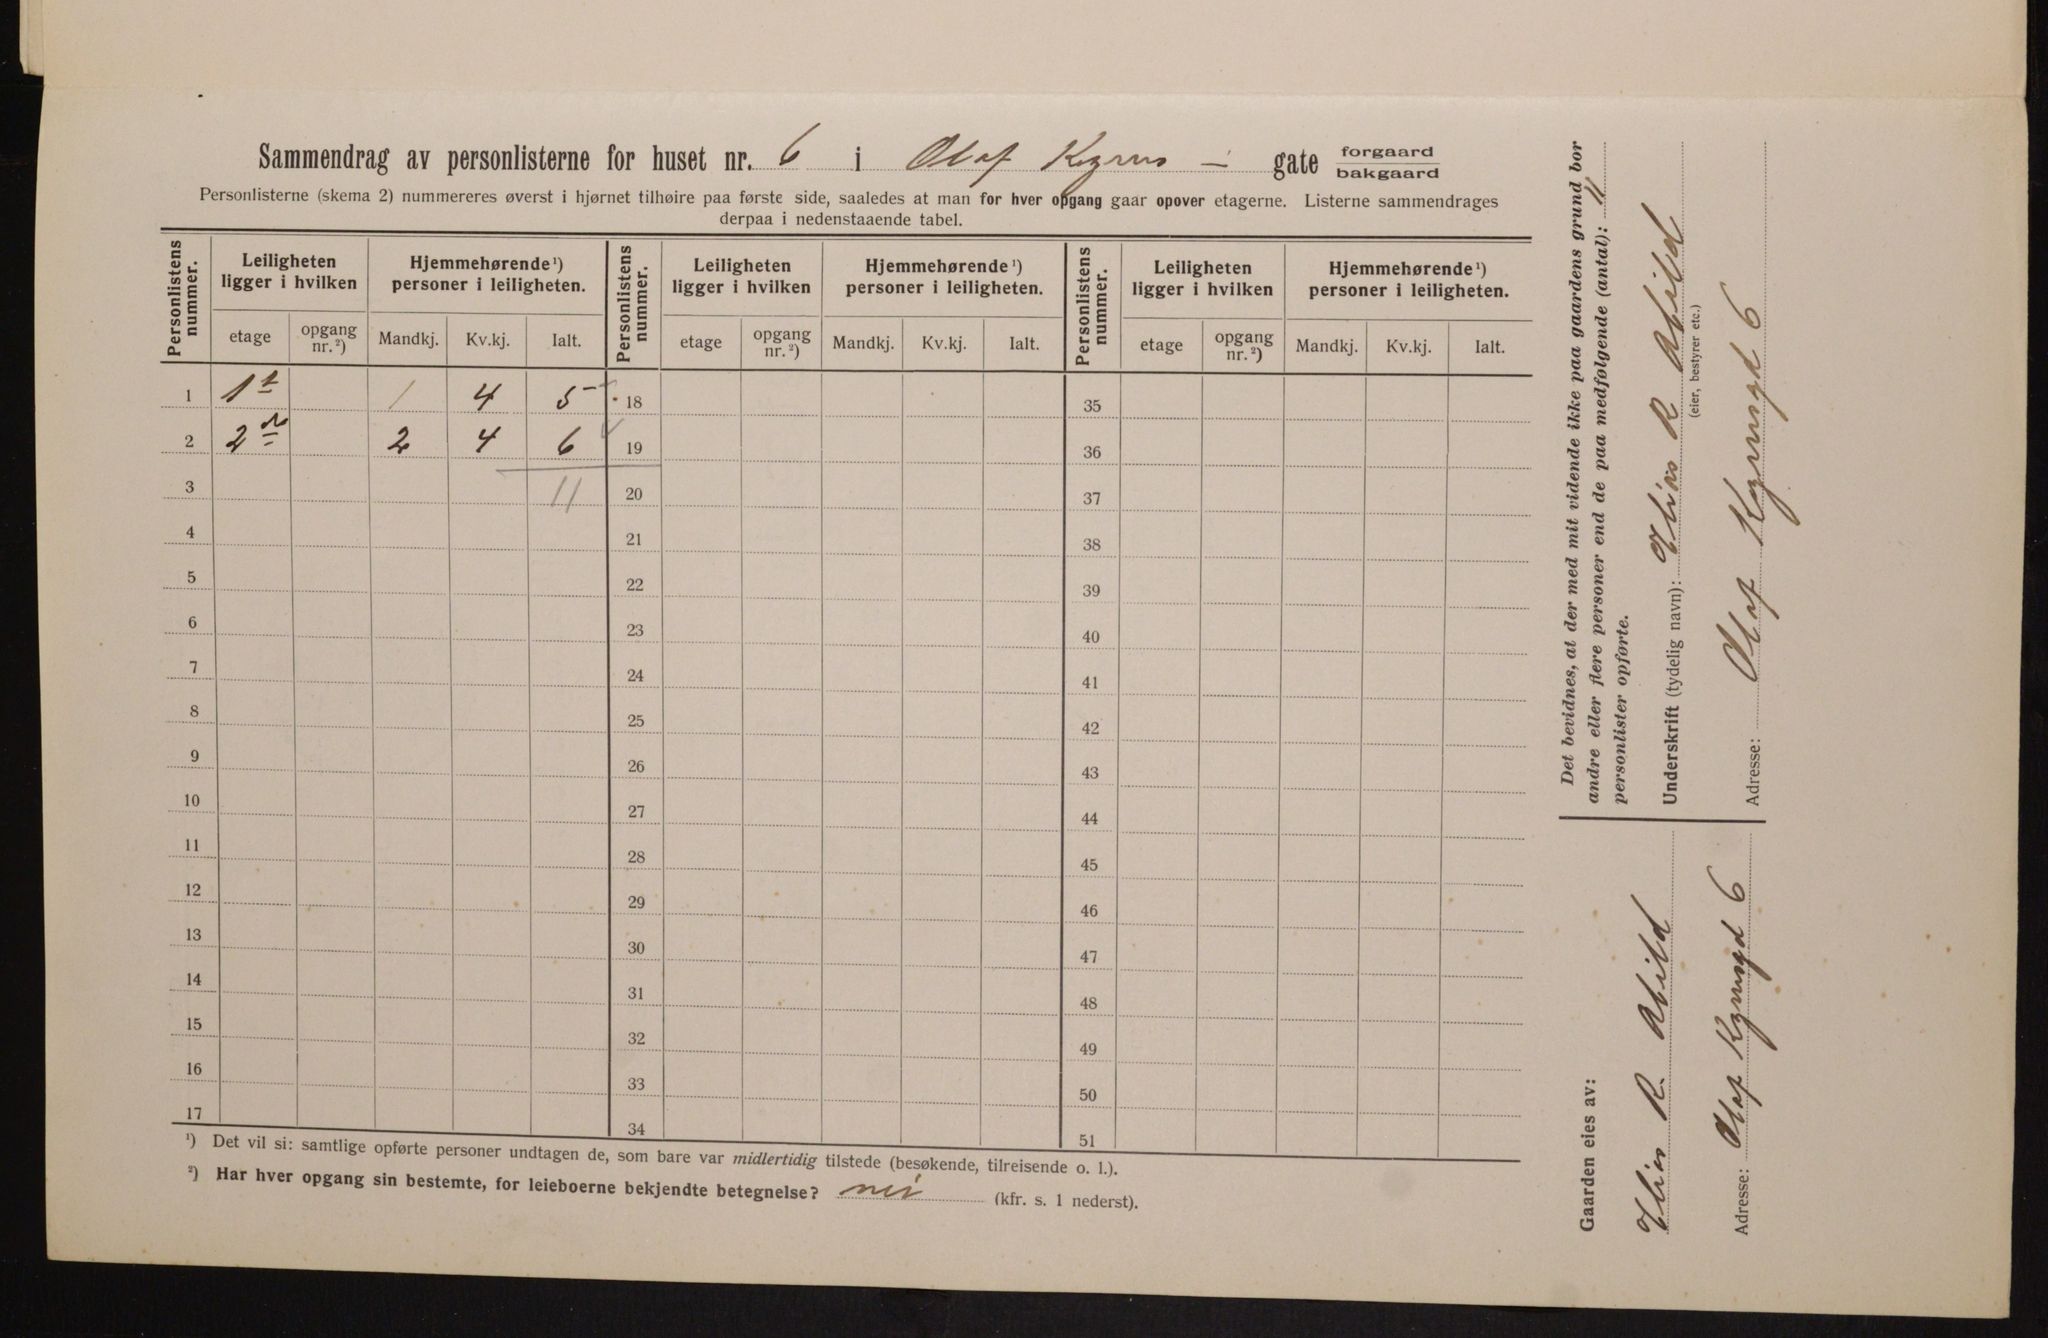 Sammendrag av personlisterne for huset nr. 6 i Olaf Kyrres – gate forgaard bakgaard
Personlisterne (skema 2) nummereres øverst i hjørnet tilhøire paa første side, saaledes at man for hver opgang gaar opover etagerne. Listerne sammendrages
derpaa i nedenstaaende tabel.
Personlistens nummer. Leiligheten ligger i hvilken Hjemmehørende¹) personer i leiligheten. Personlistens nummer. Leiligheten ligger i hvilken Hjemmehørende¹) personer i leiligheten. Personlistens nummer. Leiligheten ligger i hvilken Hjemmehørende¹) personer i leiligheten.
etage opgang nr.²) Mandkj. Kv.kj. Ialt. etage opgang nr.²) Mandkj. Kv.kj. Ialt. etage opgang nr.²) Mandkj. Kv.kj. Ialt.
1 1st 1 4 5 18 35
2 2n 2 4 6 19 36
3 11 20 37
4 21 38
5 22 39
6 23 40
7 24 41
8 25 42
9 26 43
10 27 44
11 28 45
12 29 46
13 30 47
14 31 48
15 32 49
16 33 50
17 34 51
¹) Det vil si: samtlige opførte personer undtagen de, som bare var midlertidig tilstede (besøkende, tilreisende o. l.).
²) Har hver opgang sin bestemte, for leieboerne bekjendte betegnelse? nei (kfr. s. 1 nederst).
Det bevidnes, at der med mit vidende ikke paa gaardens grund bor
andre eller flere personer end de paa medfølgende (antal): 11
personlister opførte.
Underskrift (tydelig navn): R Abild
(eier, bestyrer etc.)
Adresse: Olaf Kyrresgd 6
Gaarden eies av:
R. Abild
Adresse: Olaf Kyrresgd 6